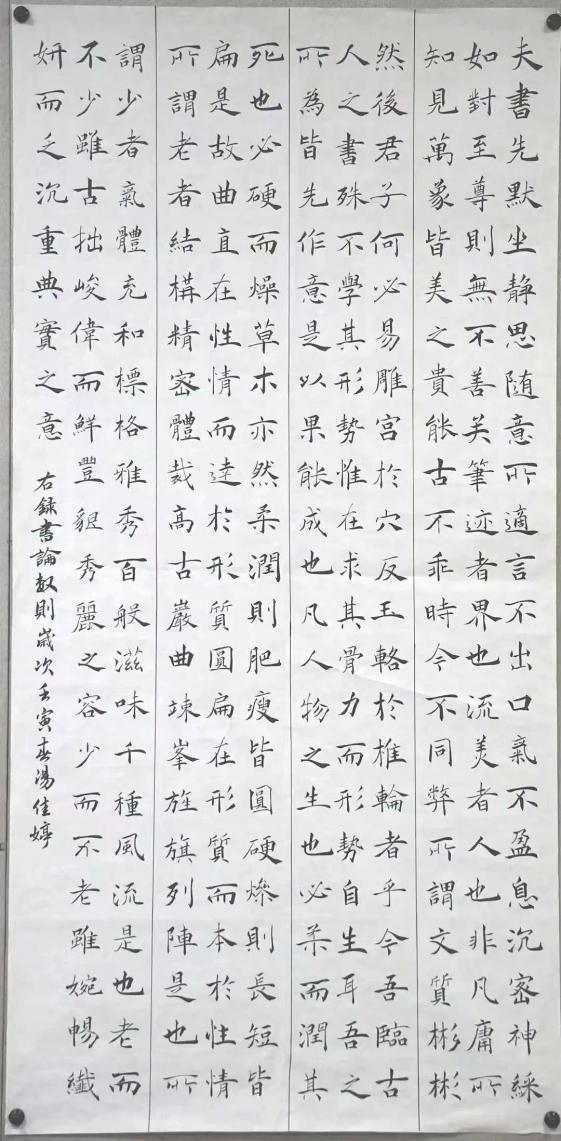 夫書先默坐靜思随意所適言不出口氣不盈息沉密神綵
如對至尊則無不善矣筆迹者界也流美者人也非凡庸所
知見萬象皆美之貴能古不乖時今不同弊所謂文質彬彬
然後君子何必易雕宮於穴反玉輅於椎輪者乎今吾臨古
人之書殊不學其形勢惟在求其骨力而形勢自生耳吾之
所為皆先作意是以果能成也凡人物之生也必柔而潤其
死也必硬而燥草木亦然柔潤則肥瘦皆圓硬燥則長短皆
扁是故曲直在性情而達於形質圓扁在形質而本於性情
所謂老者結構精密體裁高古巖曲竦峯旌旗列陣是也所
謂少者氣體充和標格雅秀百般滋味千種風流是也老而
不少雖古拙峻偉而鮮豐貌秀麗之容少而不老雖婉暢纖
妍而乏沉重典實之意 右錄書論数則歲次壬寅春湯佳婷